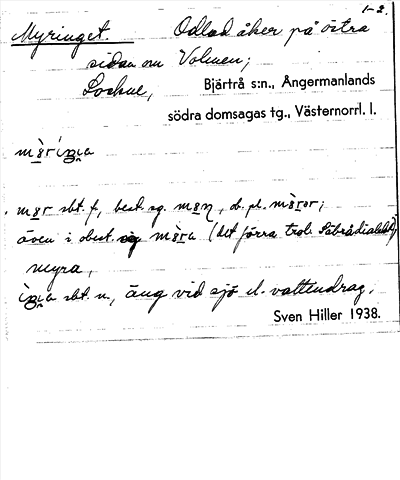 1-2.
Myringet. Odlad åker på östra
sidan om Volmen;
Lockne, Bjärtrå s:n., Ångermanlands
södra domsagas tg., Västernorrl. l.
sbt. f., best. sg. ob. pl.
även i obest. sg (det förra trol. Säbrådialekt)
myra,
sbt. n., äng vid sjö el. vattendrag.
Sven Hiller 1938.